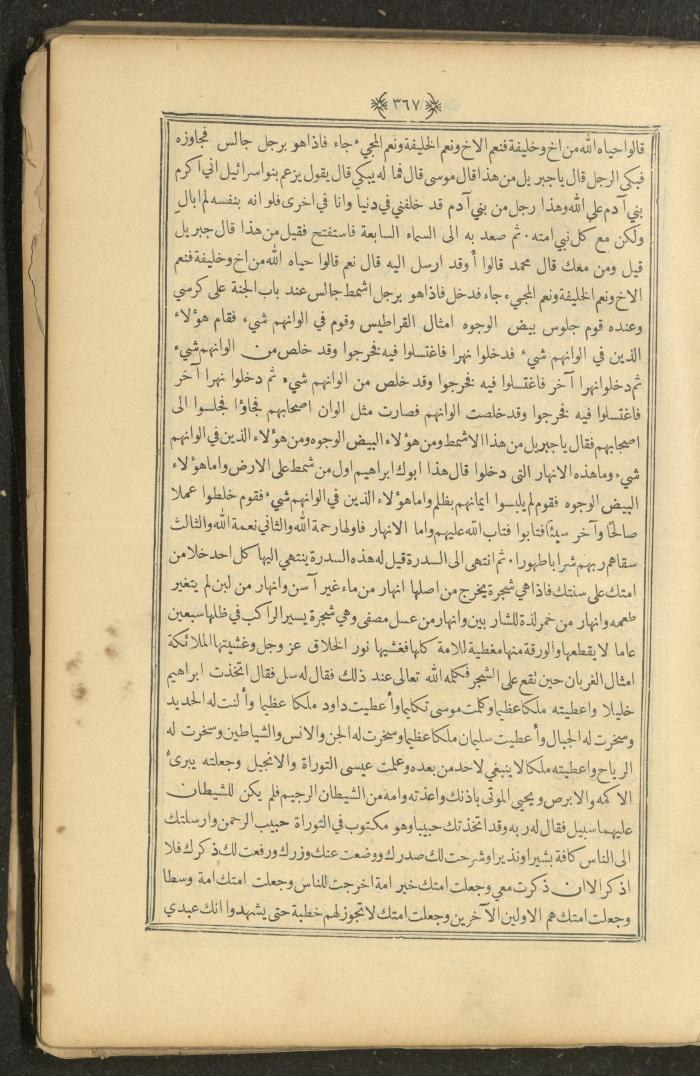 ﴿٣٦٧﴾
قالوا حياه الله من اخ وخليفة فنعم الاخ ونعم الخليفة ونعم المجيء جاء فاذا هو برجل جالس فجاوزه
فبكى الرجل قال يا جبريل من هذا قال موسى قال فما له يبكي قال يقول يزعم بنو اسرائيل اني اكرم
بني آدم على الله وهذا رجل من بني آدم قد خلفني في دنيا وانا في اخرى فلو انه بنفسه لم ابال
ولكن مع كل نبي امته ٠ ثم صعد به الى السماء السابعة فاستفتح فقيل من هذا قال جبريل
قيل ومن معك قال محمد قالوا أوقد ارسل اليه قال نعم قالوا حياه الله من اخ وخليفة فنعم
الاخ ونعم الخليفة ونعم المجيء جاء فدخل فاذا هو برجل اشمط جالس عند باب الجنة على كرسي
وعنده قوم جلوس بيض الوجوه امثال القراطيس وقوم في الوانهم شيء فقام هؤلاء
الذين في الوانهم شيء فدخلوا نهرا فاغتسلوا فيه فخرجوا وقد خلص من الوانهم شيء
ثم دخلوا نهرا آخر فاغتسلوا فيه فخرجوا وقد خلص من الوانهم شيء ثم دخلوا نهرا آخر
فاغتسلوا فيه فخرجوا وقد خلصت الوانهم فصارت مثل الوان اصحابهم فجاؤا فجلسوا الى
اصحابهم فقال يا جبريل من هذا الاشمط ومن هؤلاء البيض الوجوه ومن هؤلاء الذين في الوانهم
شيء وما هذه الانهار التى دخلوا قال هذا ابوك ابراهيم اول من شمط على الارض واما هؤلاء
البيض الوجوه فقوم لم يلبسوا ايمانهم بظلم واما هؤلاء الذين في الوانهم شيء فقوم خلطوا عملا
صالحا وآخر سيئا فتابوا فتاب الله عليهم واما الانهار فاولها رحمة الله والثاني نعمة الله والثالث
سقاهم ربهم شرابا طهورا ٠ ثم انتهى الى السدرة قيل له هذه السدرة ينتهي اليها كل احد خلا من
امتك على سنتك فاذا هي شجرة يخرج من اصلها انهار من ماء غير آسن وانهار من لبن لم يتغير
طعمه وانهار من خمر لذة للشاربين وانهار من عسل مصفى وهي شجرة يسير الراكب في ظلها سبعين
عاما لا يقطعها والورقة منها مغطية للامة كلها فغشيها نور الخلاق عز وجل وغشيتها الملائكة
امثال الغربان حين تقع على الشجر فكلمه الله تعالى عند ذلك فقال له سل فقال اتخذت ابراهيم
خليلا واعطيته ملكا عظيما وكلمت موسى تكليما وأعطيت داود ملكا عظيما وألنت له الحديد
وسخرت له الجبال وأعطيت سليمان ملكا عظيما وسخرت له الجن والانس والشياطين وسخرت له
الرياح واعطيته ملكا لا ينبغي لاحد من بعده وعلمت عيسى التوراة والانجيل وجعلته يبرئ
الاكمه والابرص ويحيى الموتى باذنك واعذته وامه من الشيطان الرجيم فلم يكن للشيطان
عليهما سبيل فقال له ربه وقد اتخذتك حبيبا وهو مكتوب في التوراة حبيب الرحمن وارسلتك
الى الناس كافة بشيرا ونذيرا وشرحت لك صدرك ووضعت عنك وزرك ورفعت لك ذكرك فلا
اذكر الا ان ذكرت معي وجعلت امتك خير امة اخرجت للناس وجعلت امتك امة وسطا
وجعلت امتك هم الاولين الآخرين وجعلت امتك لا تجوز لهم خطبة حتى يشهدوا انك عبدي